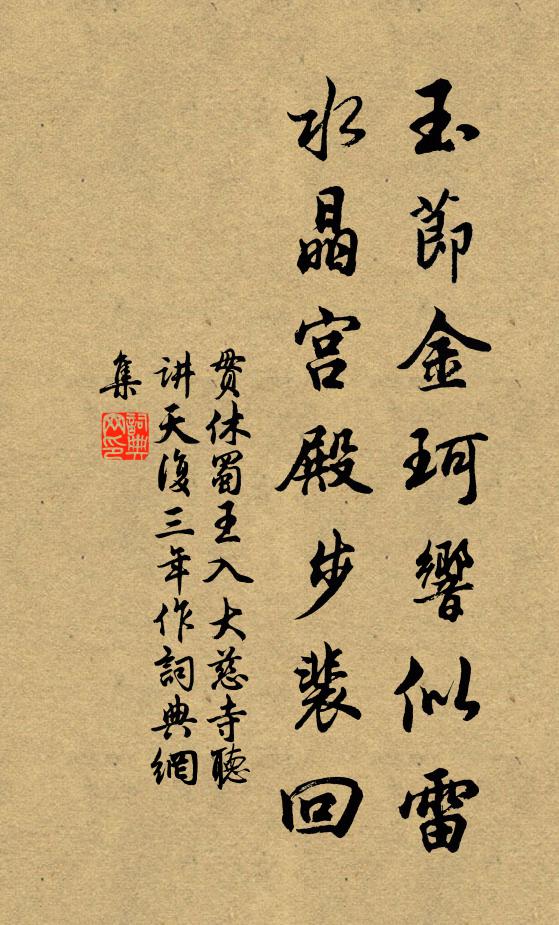 玉節金珂響似雷
水晶宮殿步裴回
貫休蜀王入大慈寺聽
讲天復三年作詞典網
集
詞典網印